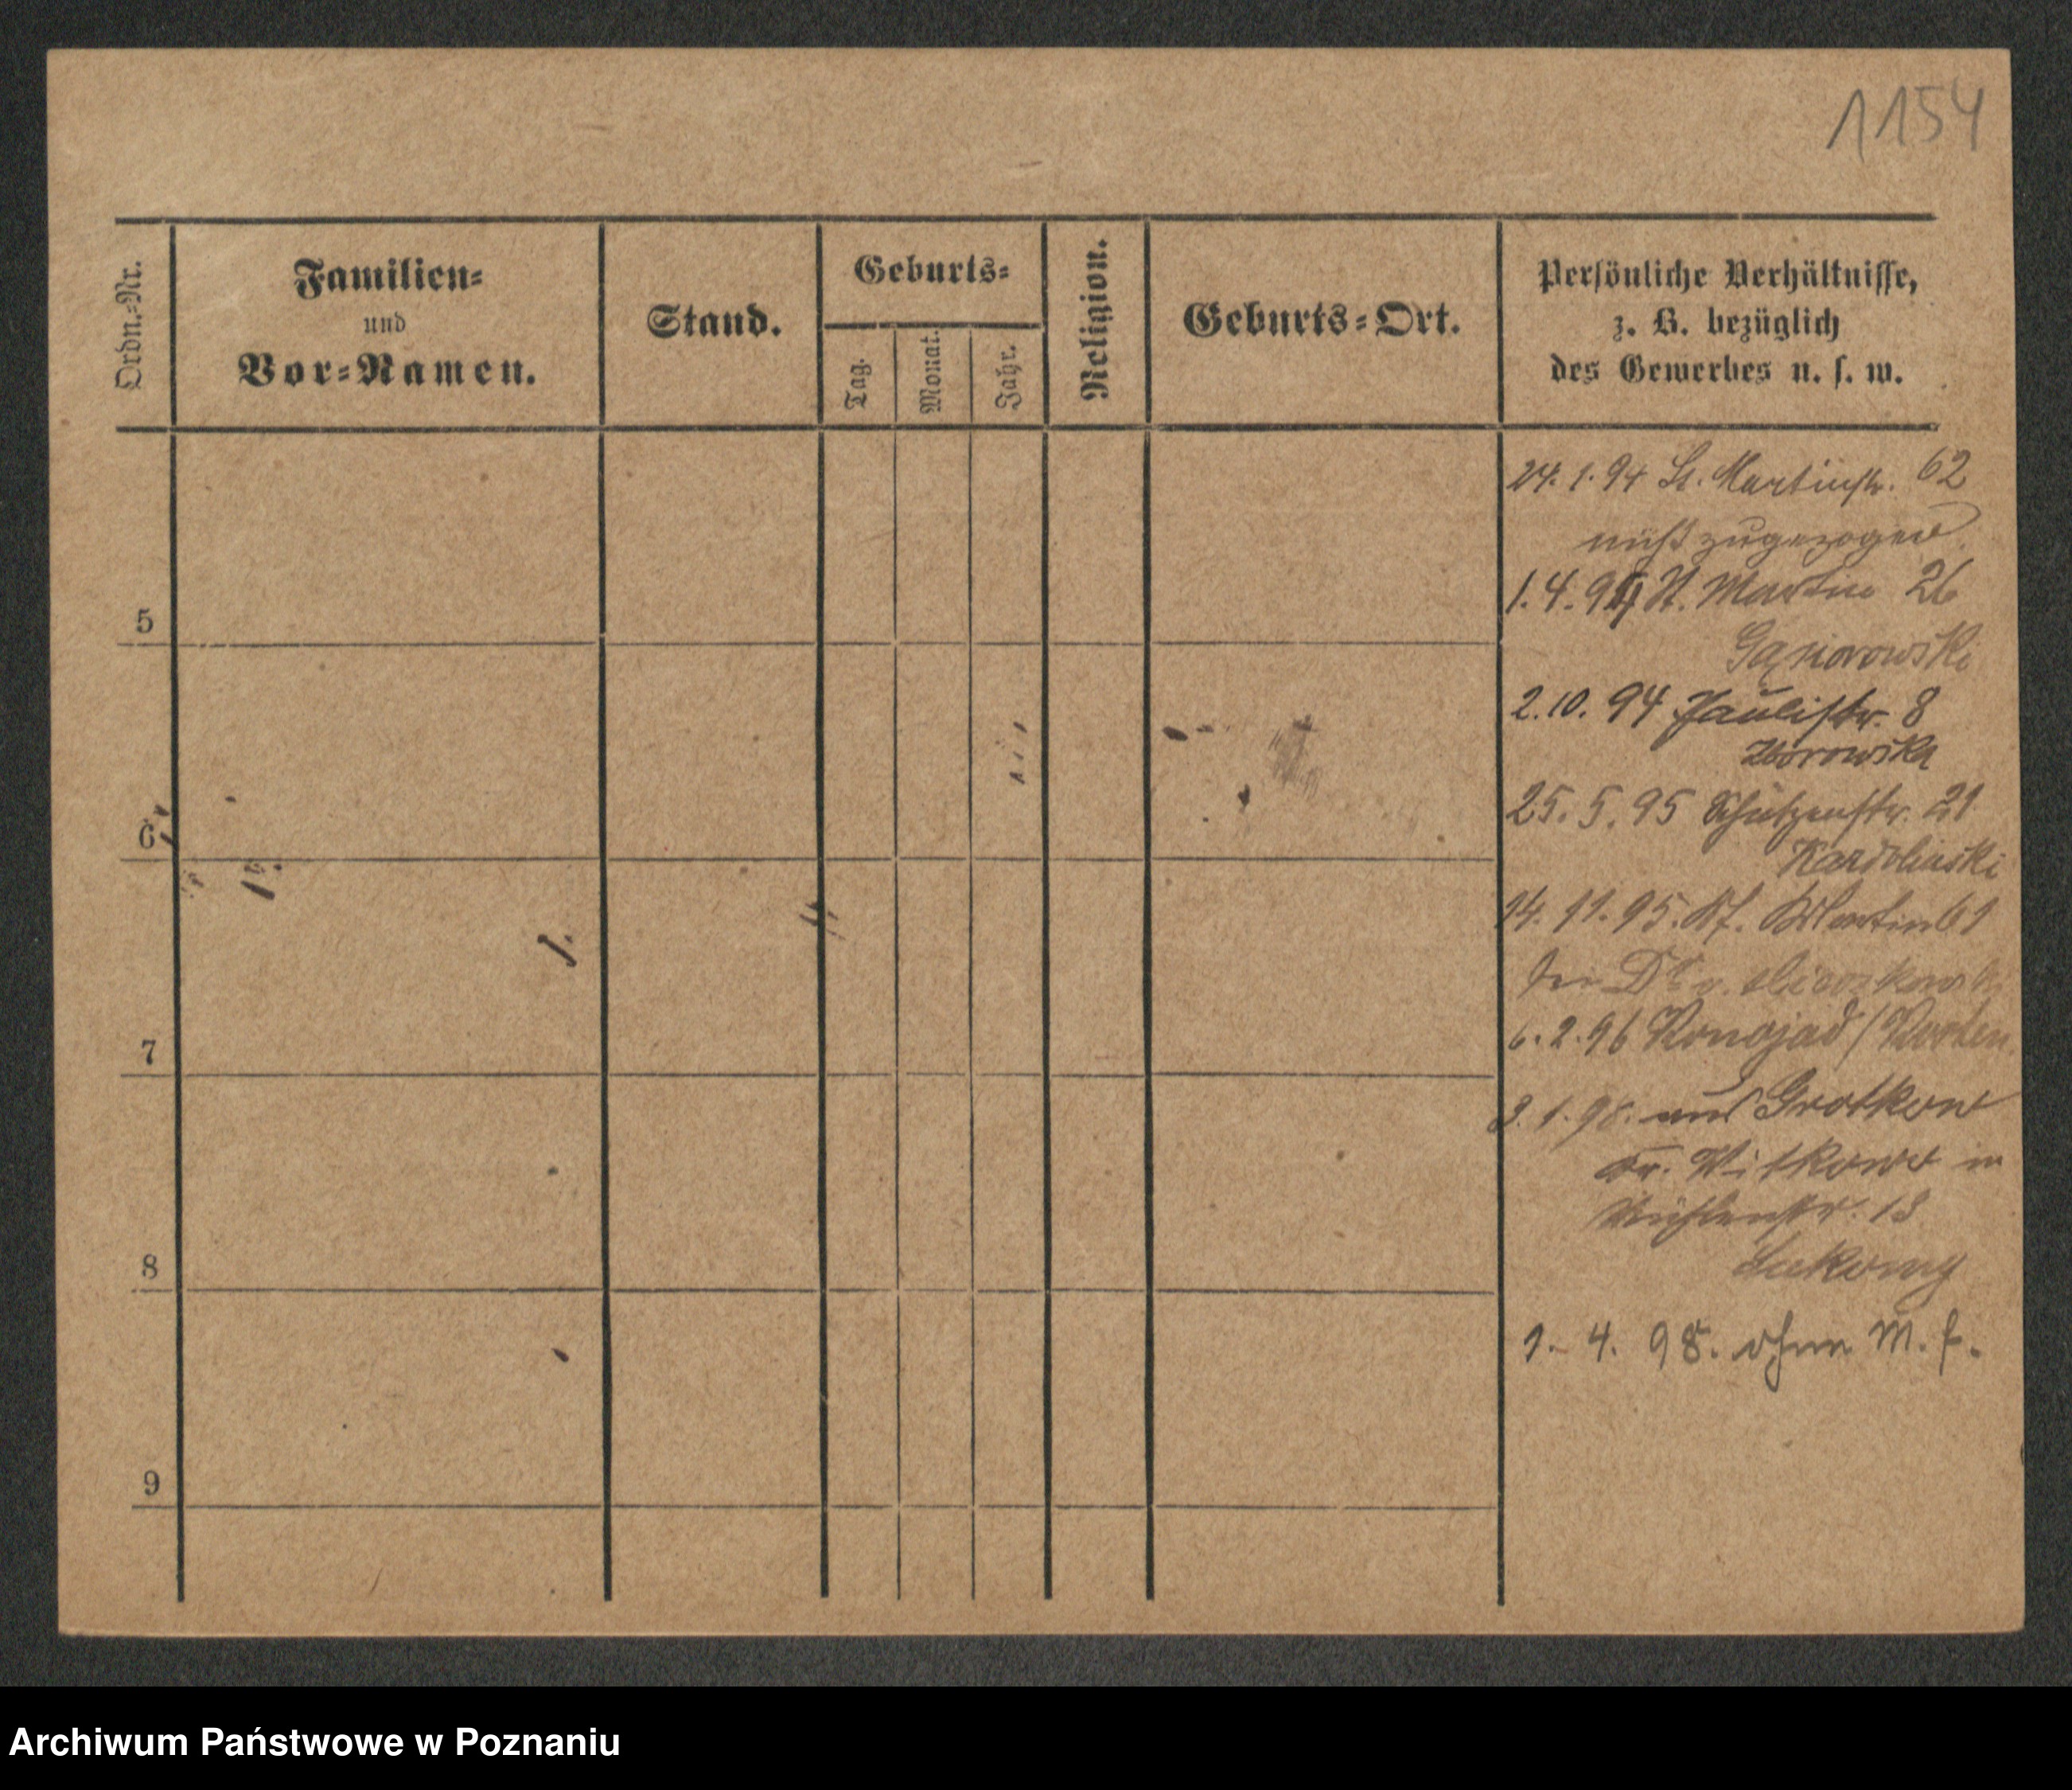 1154
Ordn.-Nr.
Familien-
und
Vor-Namen.
Stand.
Geburts-
Tag.
Monat.
Jahr.
Religion.
Geburts-Ort.
Persönliche Verhältnisse,
z. B. bezüglich
des Gewerbes u. s. w.
24. 1. 94 St. Martinstr. 62
nicht zugezogen
1. 4. 94 St. Martin 26
Gąsiorowski
2. 10. 94 Paulistr. 8
Zborowska
25. 5. 95 Schützenstr. 21
14. 11. 95. St. Martin 61
Dr v.
6. 2. 96 Konojad / Kosten
3. 1. 98. aus Grotkowo
Kr. Witkowo in
Mühlenstr. 18
1. 4. 98. ohne M. f.
5
6
7
8
9
Archiwum Państwowe w Poznaniu